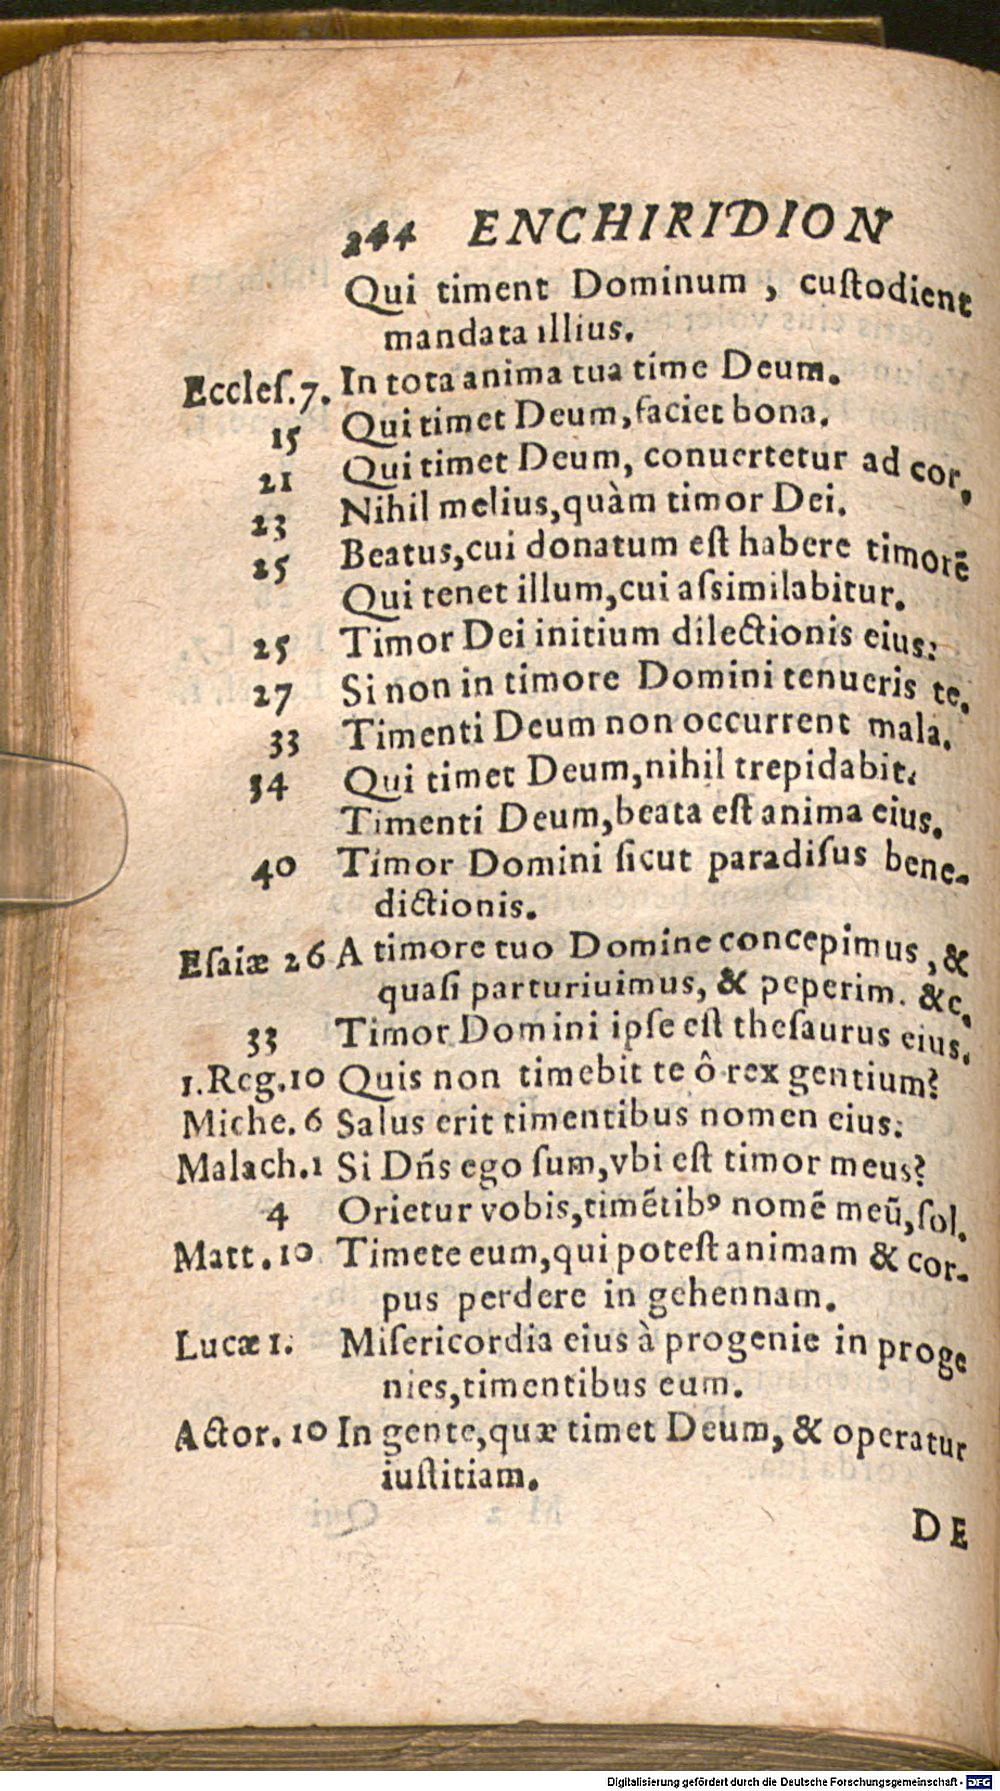 244 ENCHIRIDION
Qui timent Dominum, cuſtodient
mandata illius.
Eccleſ.7. In tota anima tua time Deum.
15 Qui timet Deum, faciet bona.
21 Qui timet Deum, conuertetur ad cor.
23 Nihil melius, quàm timor Dei.
25 Beatus, cui donatum eſt habere timorẽ
Qui tenet illum, cui aſsimilabitur.
25 Timor Dei initium dilectionis eius:
27 Si non in timore Domini tenueris te.
33 Timenti Deum non occurrent mala.
34 Qui timet Deum, nihil trepidabit.
Timenti Deum, beata eſt anima eius.
40 Timor Domini ſicut paradiſus bene-
dictionis.
Eſaiæ 26 A timore tuo Domine concepimus, &
quaſi parturiuimus, & peperim. &c.
33 Timor Domini ipſe eſt theſaurus eius.
1.Reg.10 Quis non timebit te ô rex gentium?
Miche. 6 Salus erit timentibus nomen eius:
Malach.1 Si Dñs ego ſum, vbi eſt timor meus?
4 Orietur vobis, timẽtibꝰ nomẽ meũ, ſol.
Matt. 10 Timete eum, qui poteſt animam & cor-
pus perdere in gehennam.
Lucæ 1. Miſericordia eius à progenie in proge
nies, timentibus eum.
Actor. 10 In gente, quæ timet Deum, & operatur
iuſtitiam.
DE
Digitalisierung gefördert durch die Deutsche Forschungsgemeinschaft - DFG